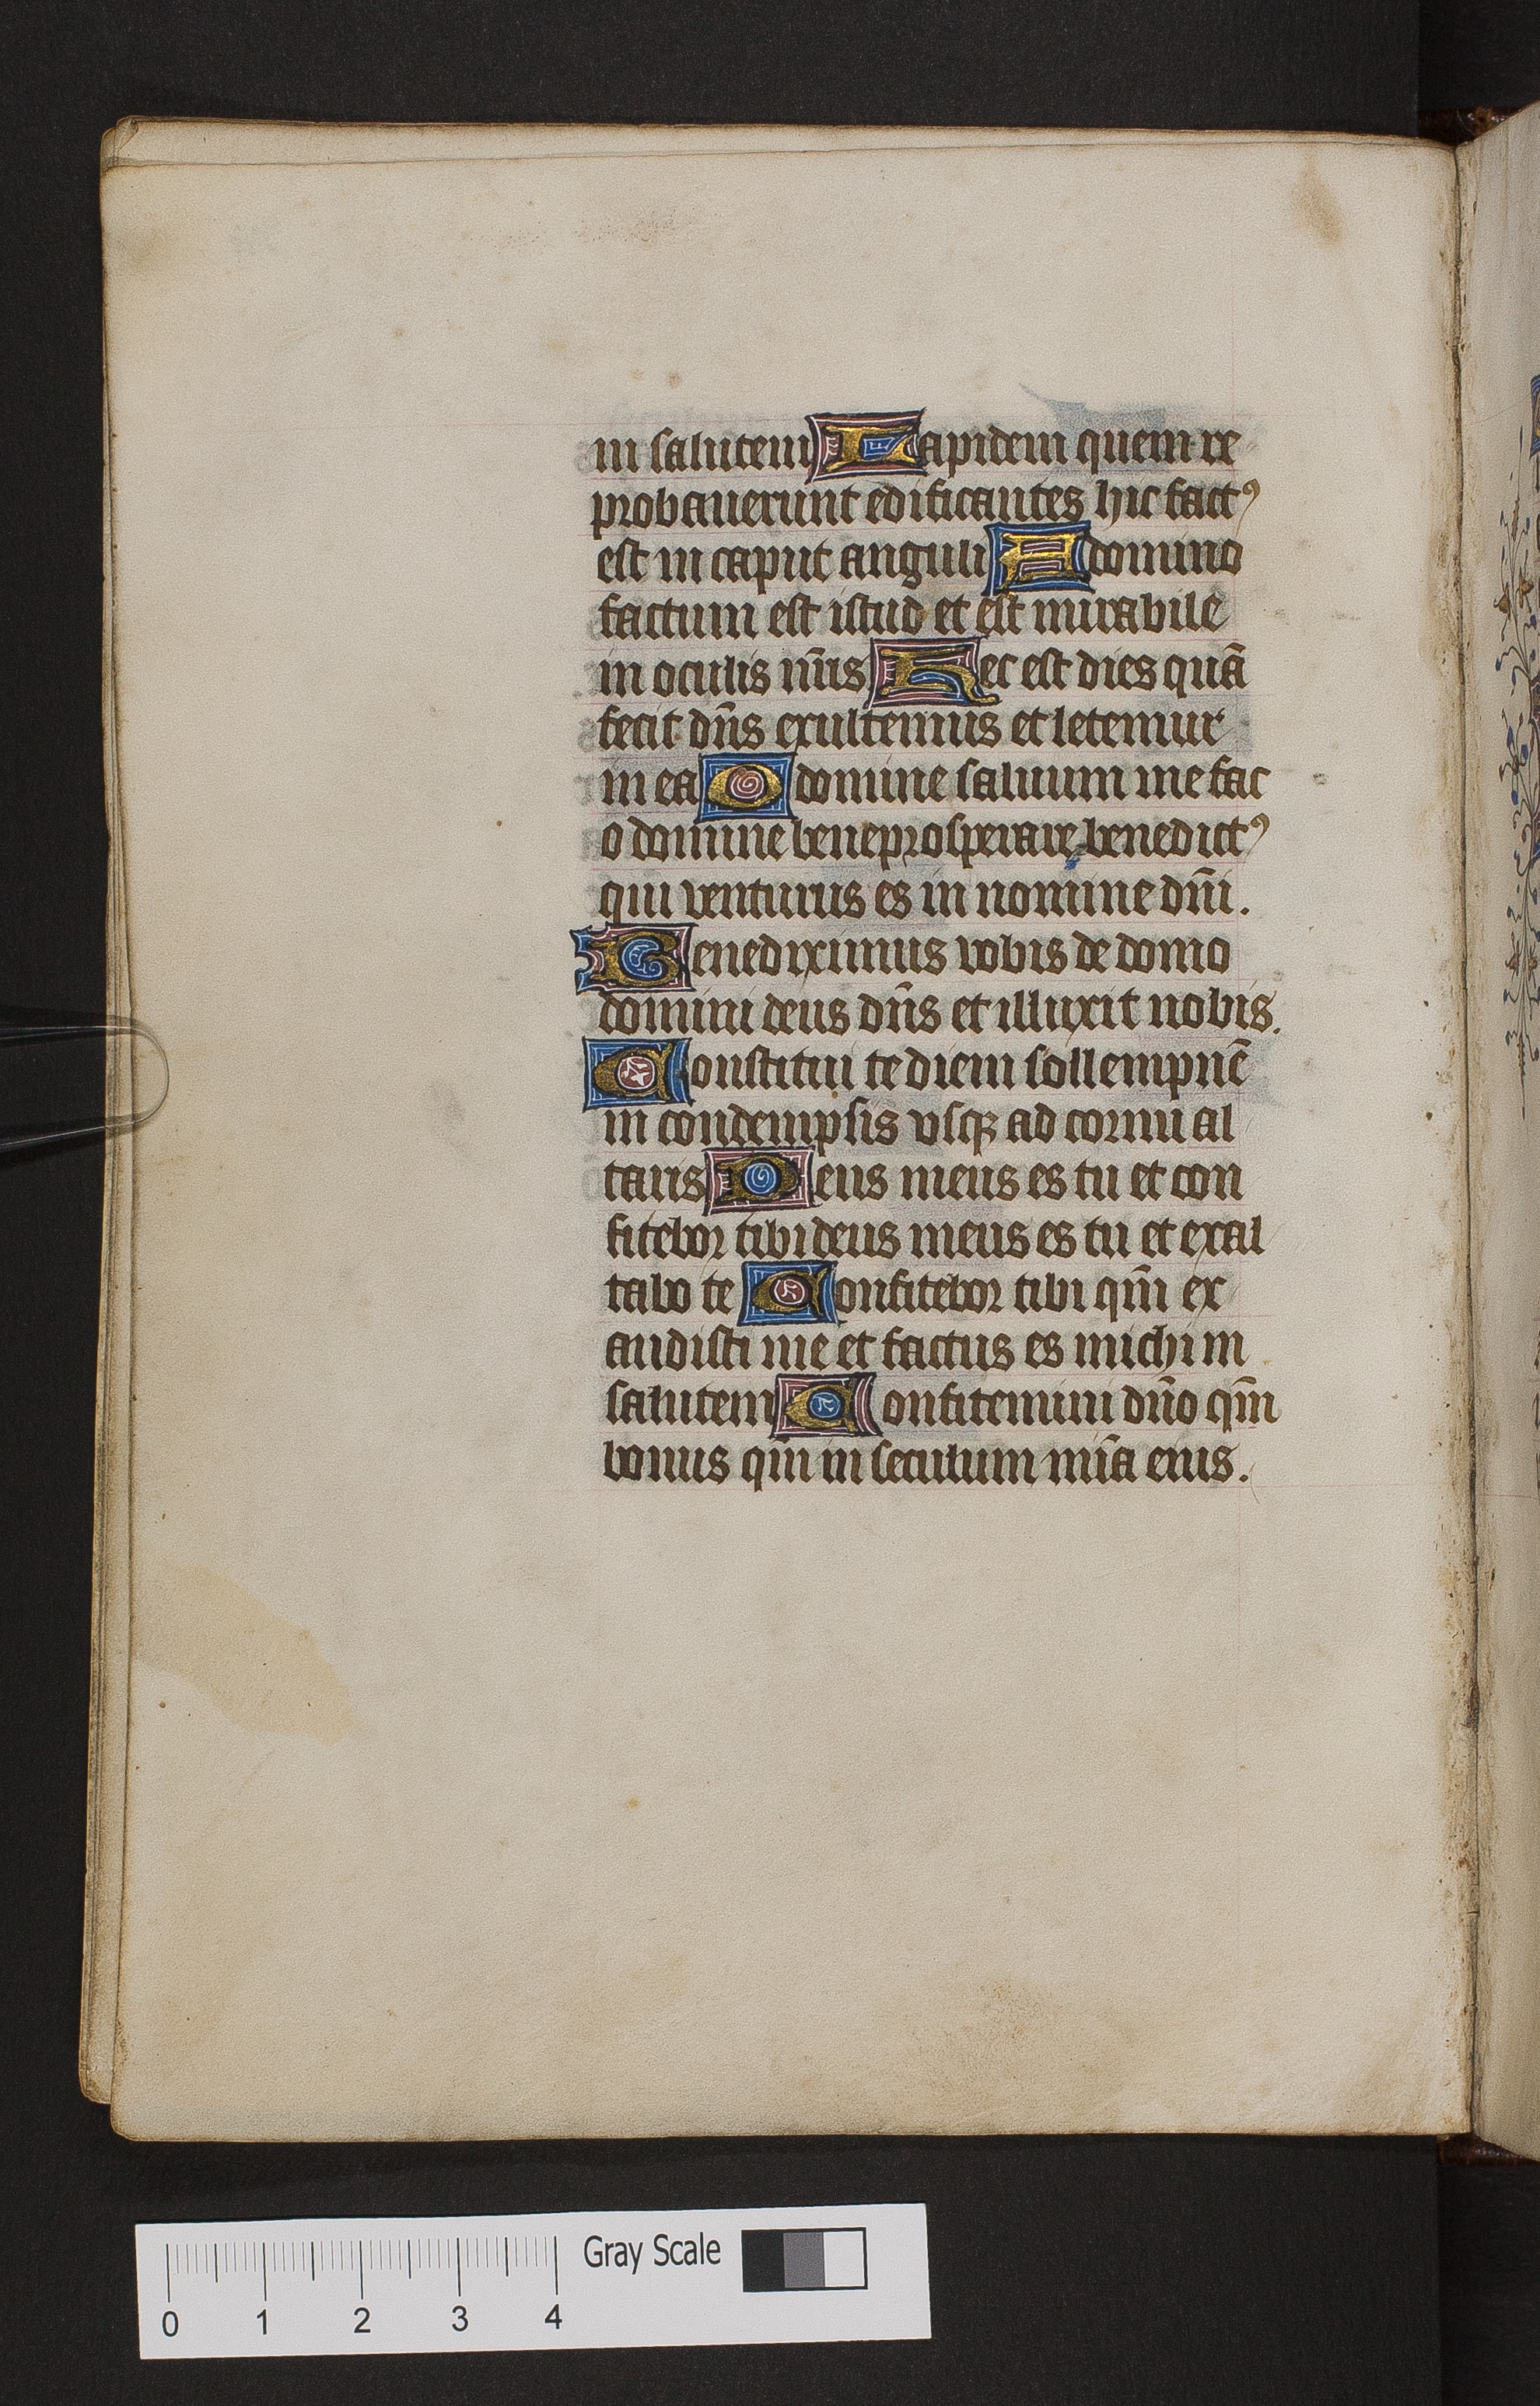 in salutem Lapidem quem re
probauerunt edificantes hic factꝰ
est in caput anguli A domino
factum est istud et est mirabile
in oculis nr̄is Hec est dies quā
fecit dn̄s exultemus et letemur
in ea O domine saluum me fac
o domine bene prosperare benedictꝰ
qui venturus es in nomine dn̄i.
Benediximus vobis de domo
domini deus dn̄s et illuxit nobis.
Constitui te diem sollempnē
in condempsis vsqꝫ ad cornu al
taris Deus meus es tu et con
fitebor tibi deus meus es tu et exal
tabo te Confitebor tibi qm̄ ex
audisti me et factus es michi in
salutem Confitemini dn̄o qm̄
bonus qm̄ in seculum mīa eius.
Gray Scale
0 1 2 3 4